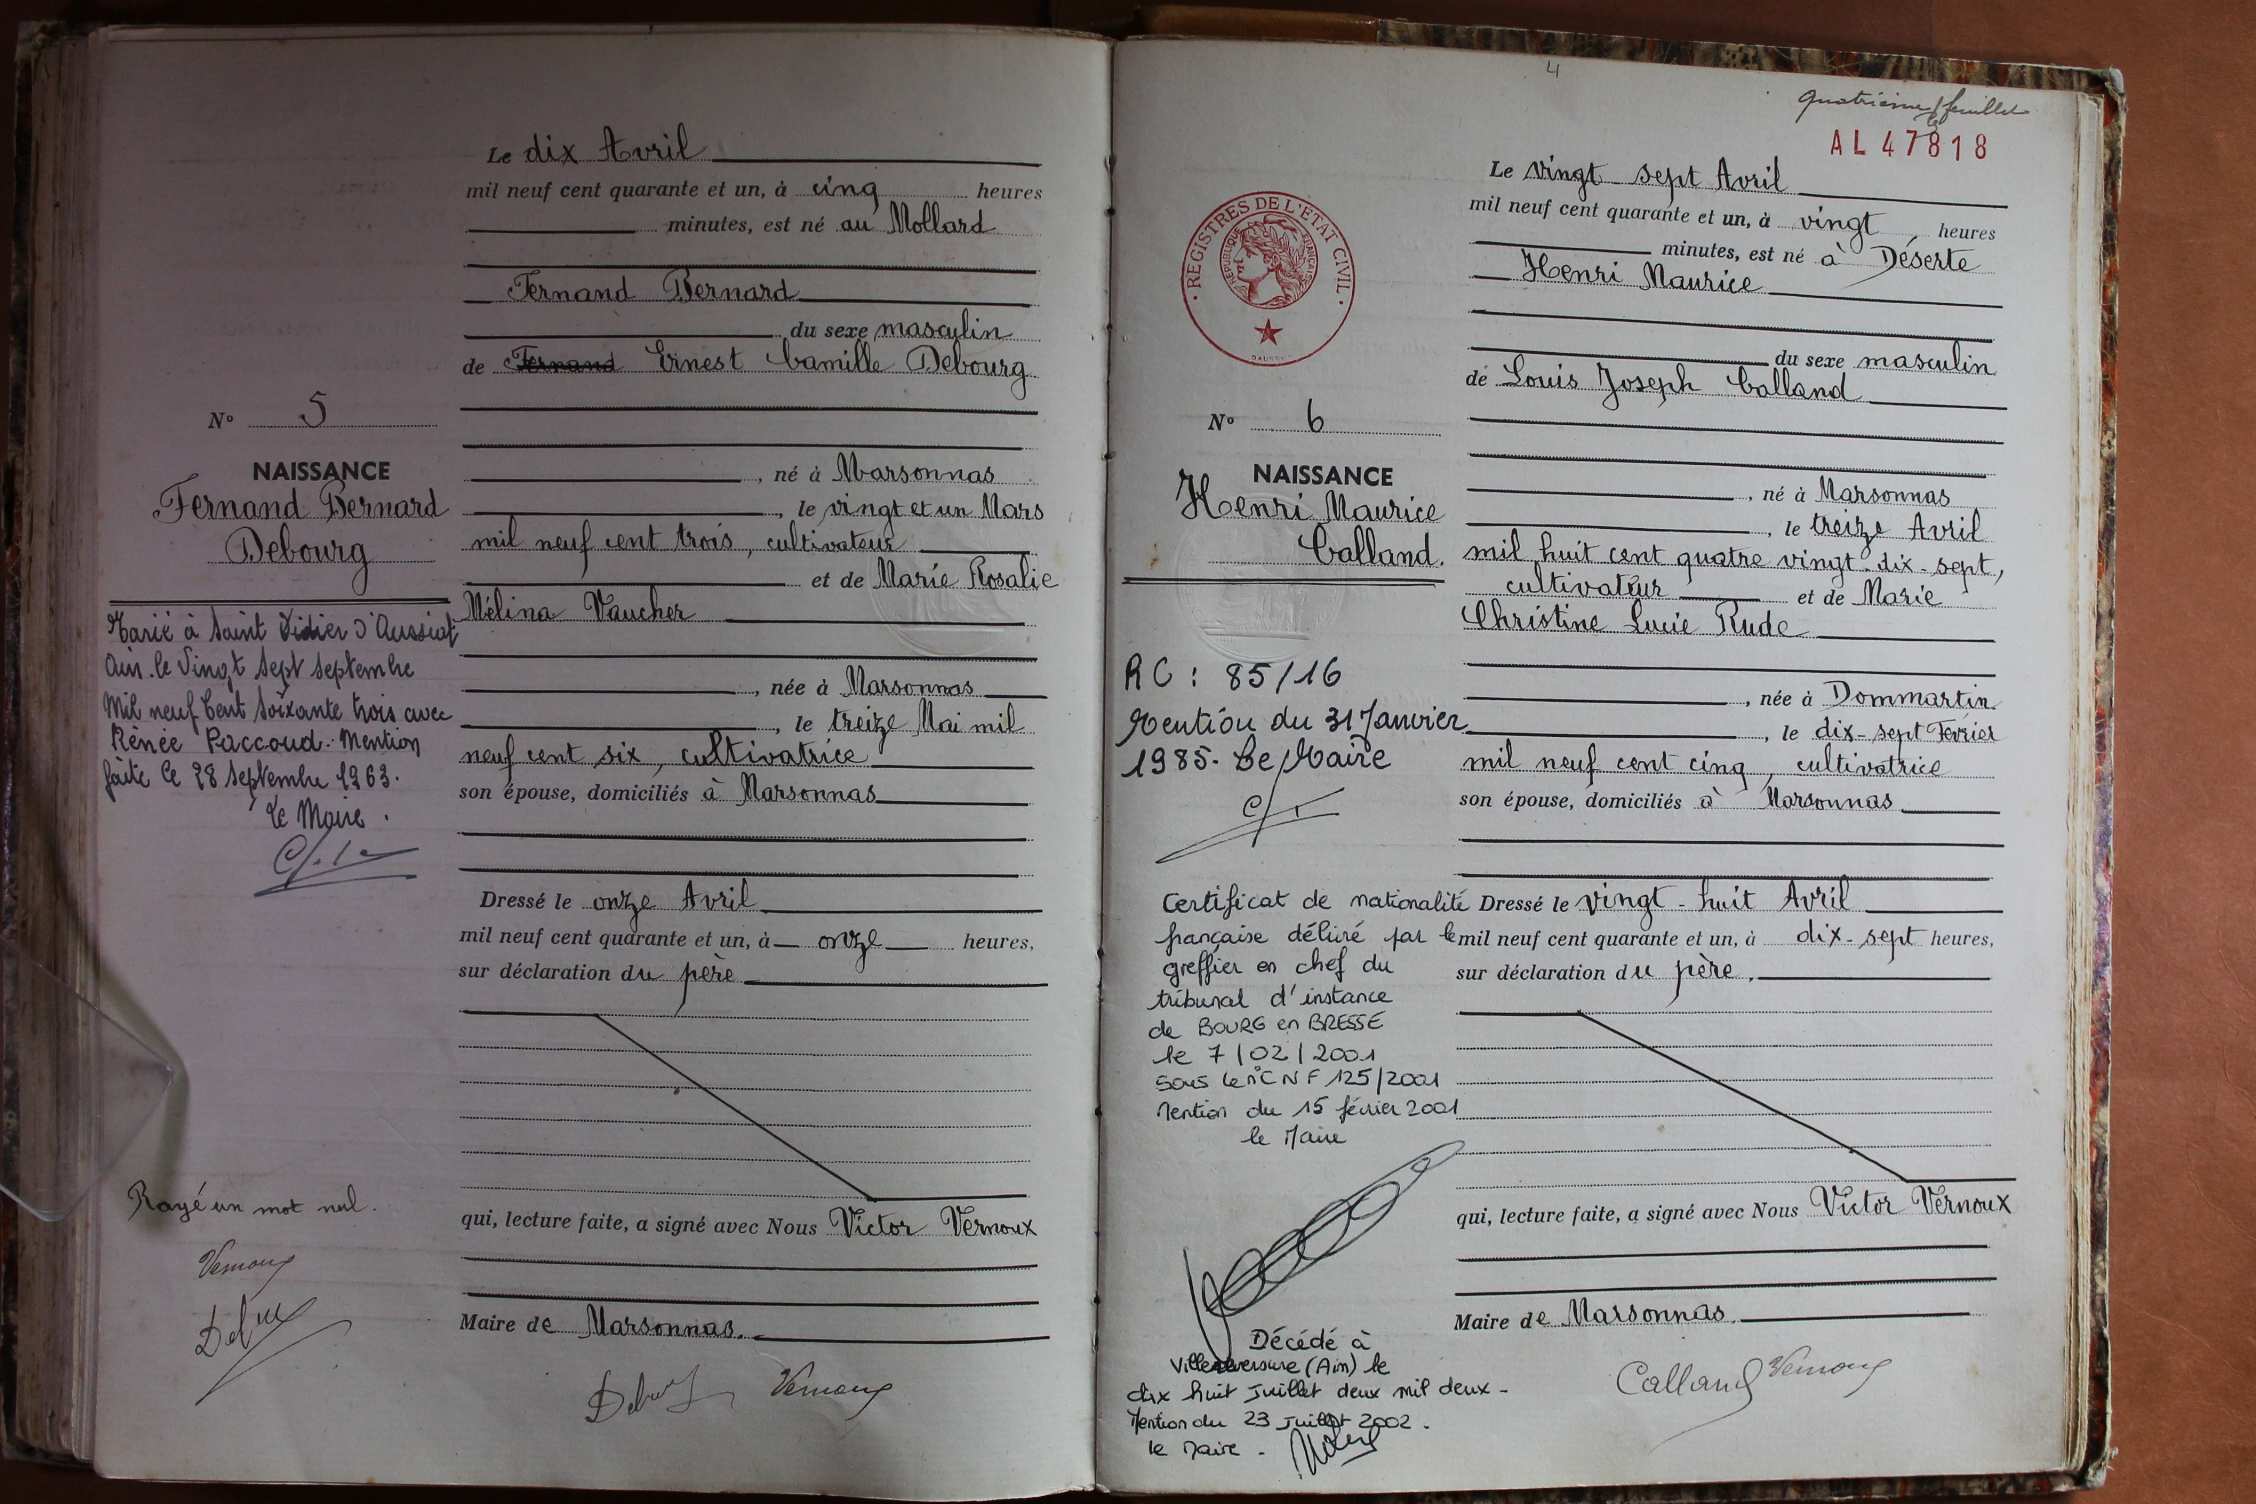 Le dix Avril
mil neuf cent quarante et un, à cinq heures
minutes, est né au Mollard
Fernand Bernard
du sexe masculin
de Fernand Ernest Camille Debourg
N° 5
NAISSANCE
Fernand Bernard
Debourg
, né à Marsonnas
, le vingt et un Mars
mil neuf cent trois, cultivateur
et de Marie Rosalie
Mélina Vaucher
, née à Marsonnas
, le treize Mai mil
neuf cent six, cultivatrice
son épouse, domiciliés à Marsonnas
Marié à Saint Didier d'Aussiat
Ain. le Vingt Sept Septembre
Mil neuf Cent Soixante trois avec
Renée Paccoud. Mention
faite le 28 Septembre 1963.
Le Maire.
Dressé le onze Avril
mil neuf cent quarante et un, à onze heures,
sur déclaration du père
Rayé un mot nul.
Vernoux
qui, lecture faite, a signé avec Nous Victor Vernoux
Maire de Marsonnas.
Vernoux
4
quatrième feuillet
AL 47818
REGISTRES DE L'ETAT CIVIL
REPUBLIQUE FRANÇAISE
Le vingt sept Avril
mil neuf cent quarante et un, à vingt heures
minutes, est né à Déserte
Henri Maurice
du sexe masculin
de Louis Joseph Calland
N° 6
NAISSANCE
Henri Maurice
Calland.
, né à Marsonnas
, le treize Avril
mil huit cent quatre vingt-dix-sept,
cultivateur et de Marie
Christine Lucie Rude
, née à Dommartin
, le dix-sept Février
mil neuf cent cinq, cultivatrice
son épouse, domiciliés à Marsonnas
RC : 85/16
Mention du 31 Janvier
1985. Le Maire
Certificat de nationalité
française délivré par le
greffier en chef du
tribunal d'instance
de BOURG en BRESSE
le 7/02/2001
sous le n° CNF 125/2001
Mention du 15 février 2001
le Maire
Dressé le vingt-huit Avril
mil neuf cent quarante et un, à dix-sept heures,
sur déclaration du père.
qui, lecture faite, a signé avec Nous Victor Vernoux
Maire de Marsonnas.
Calland Vernoux
Décédé à
Villereversure (Ain) le
dix huit Juillet deux mil deux -
Mention du 23 Juillet 2002.
le Maire -